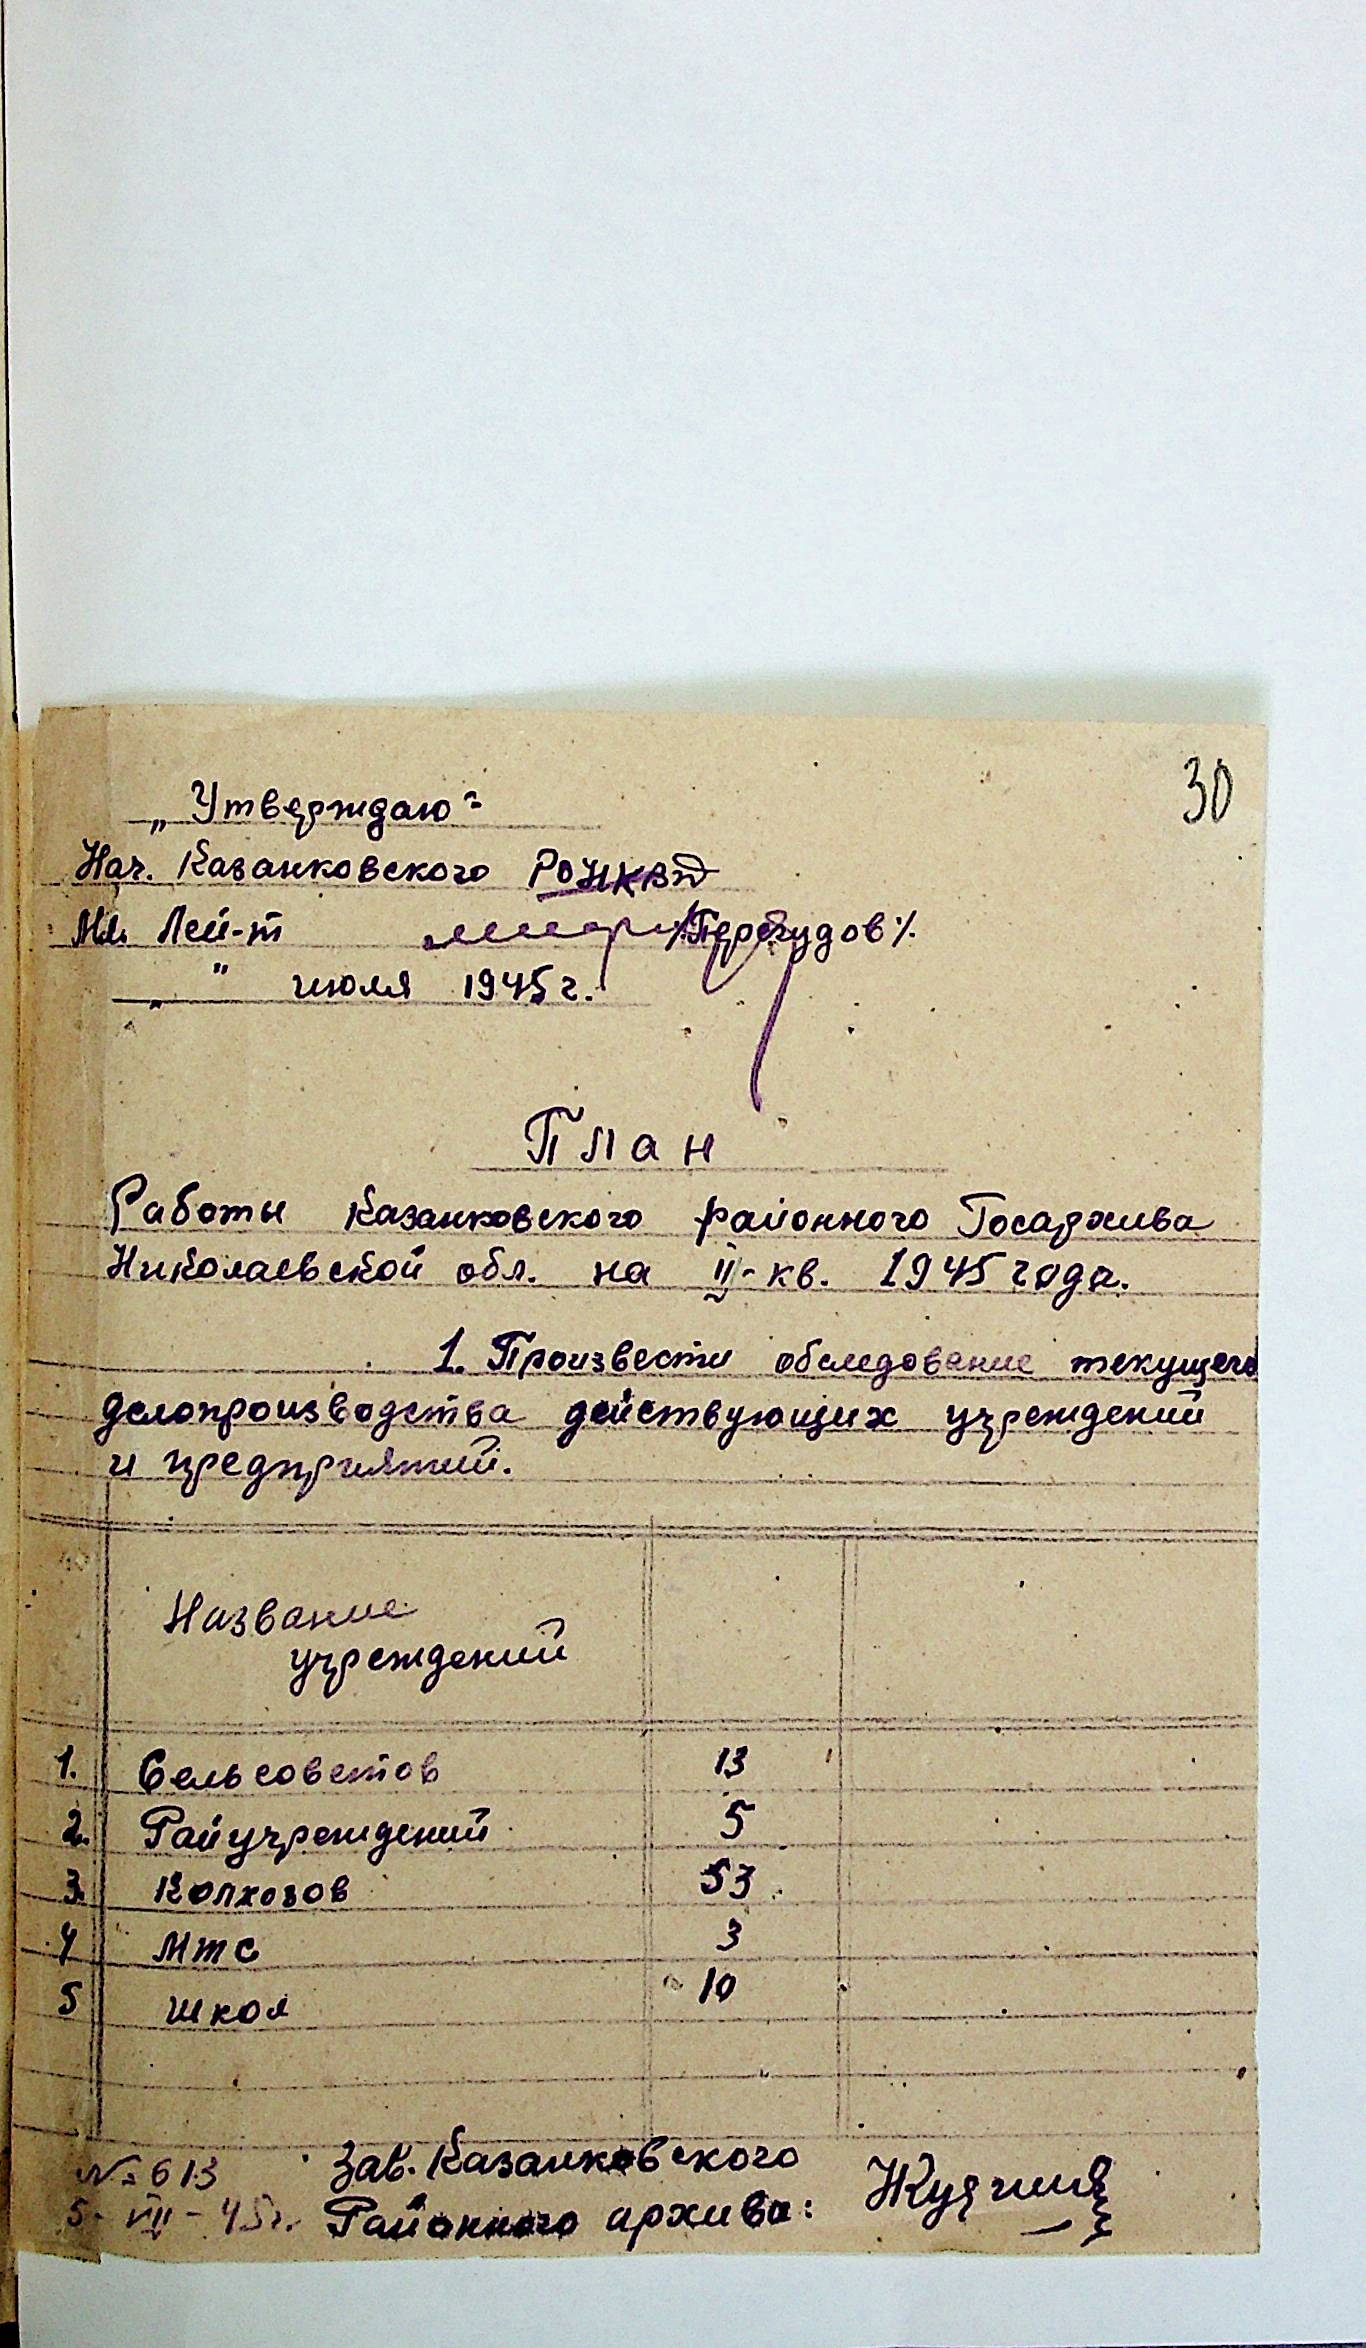 30
„Утверждаю“
Нач. Казанковского РОНКВД
Мл. Лей-т /Перегудов/.
„ “ июля 1945 г.
План
Работы Казанковского районного Госархива
Николаевской обл. на II-кв. 1945 года.
1. Произвести обследование текущего
делопроизводства действующих учреждений
и предприятий.
Название
учреждений
1. Сельсоветов 13
2. Райучреждений 5
3. Колхозов 53
4 МТС 3
5 школ 10
№ 613 Зав. Казанковского
5-VII-45г. Районного архива: